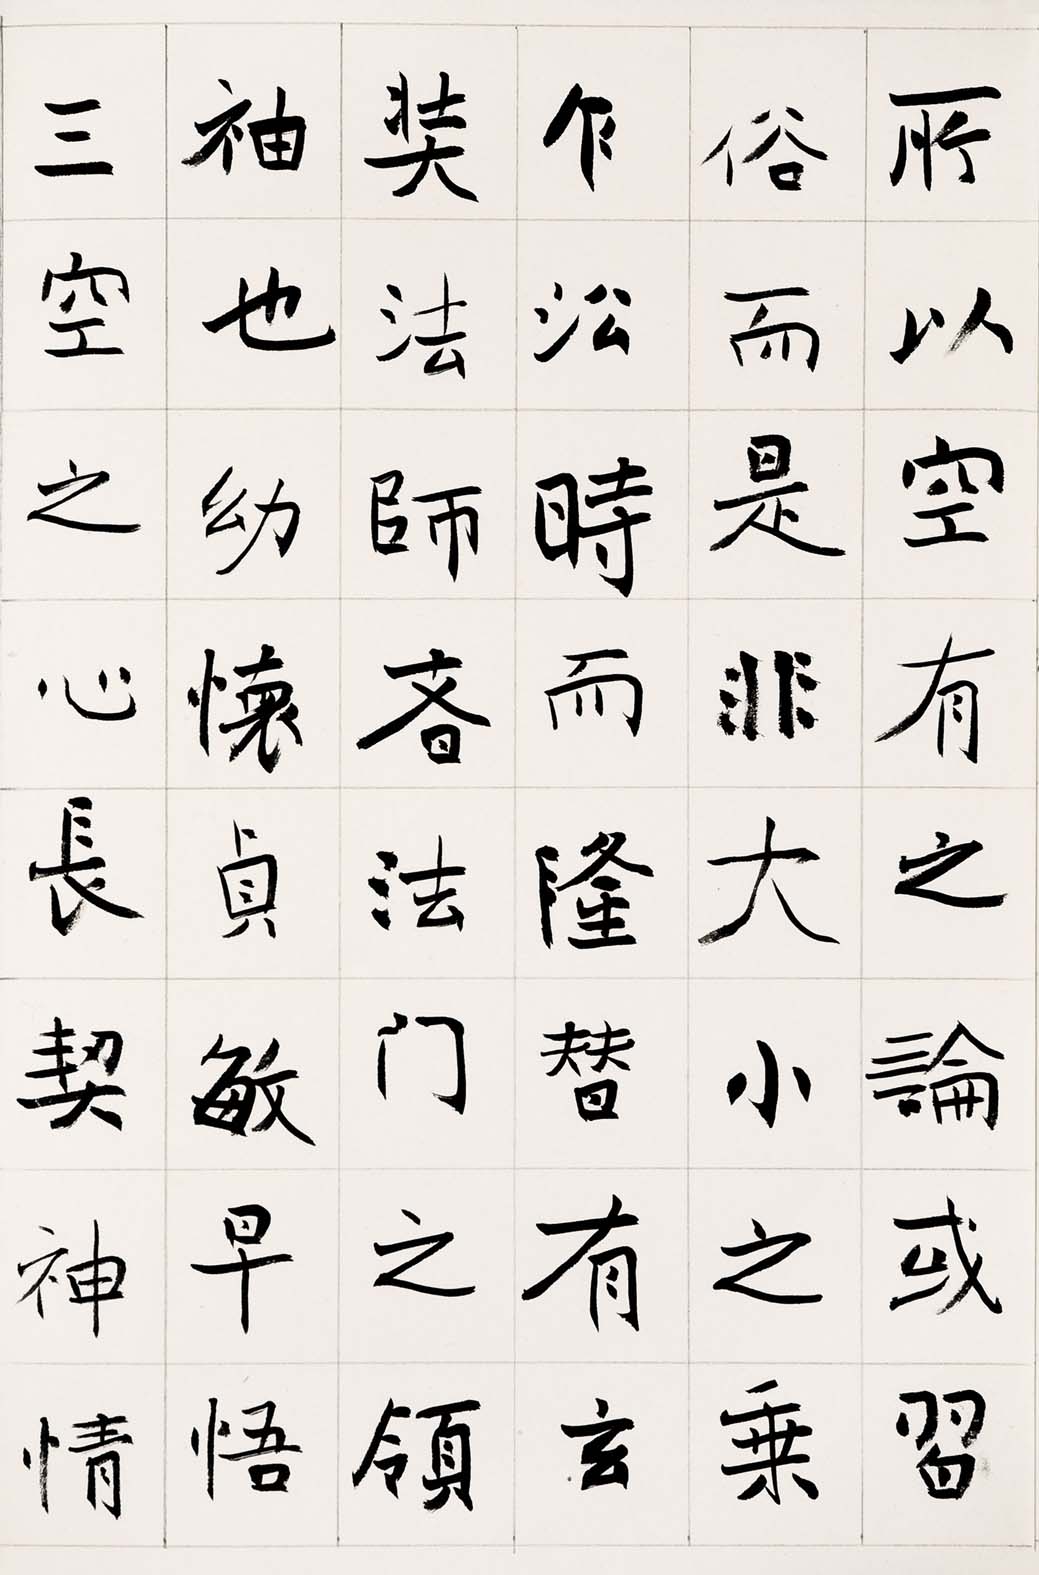 所以空有之論或習
俗而是非大小之乗
乍沿時而隆替有玄
奘法師者法门之領
袖也幼懷貞敏早悟
三空之心長契神情